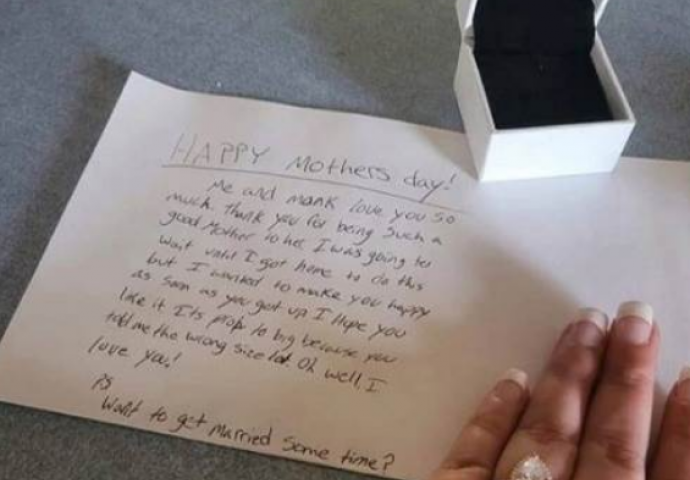 HAPPY Mothers day!
Me and monk love you so
much. Thank you for being such a
good Mother to her I was going to
wait until I got home to do this
but I wanted to make you happy
as soon as you got up I Hope you
like it Its prop to big because you
told me the wrong size lol. Oh well, I
love you!
PS
Want to get married some time?